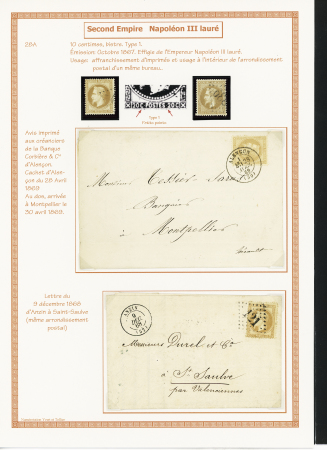 Second Empire Napoléon III lauré
28A
10 centimes, bistre. Type 1.
Émission: Octobre 1867. Effigie de l'Empereur Napoléon III lauré.
Usage: affranchissement d'imprimés et usage à l'intérieur de l'arrondissement
postal d'un même bureau.
20C POSTES 20C
Type 1
Avis imprimé
aux créanciers
de la Banque
& Cie
d'Alençon.
Cachet d'Alen-
çon du 28 Avril
1869
Au dos, arrivée
à Montpellier le
30 avril 1869.
ALENÇON
Monsieur
Banquier
à Montpellier
Hérault
Lettre du
9 décembre 1868
d'Anzin à Saint-Saulve
(même arrondissement
postal)
ANZIN
9
DEC
Messieurs Durel et Cie
à St Saulve
par Valenciennes